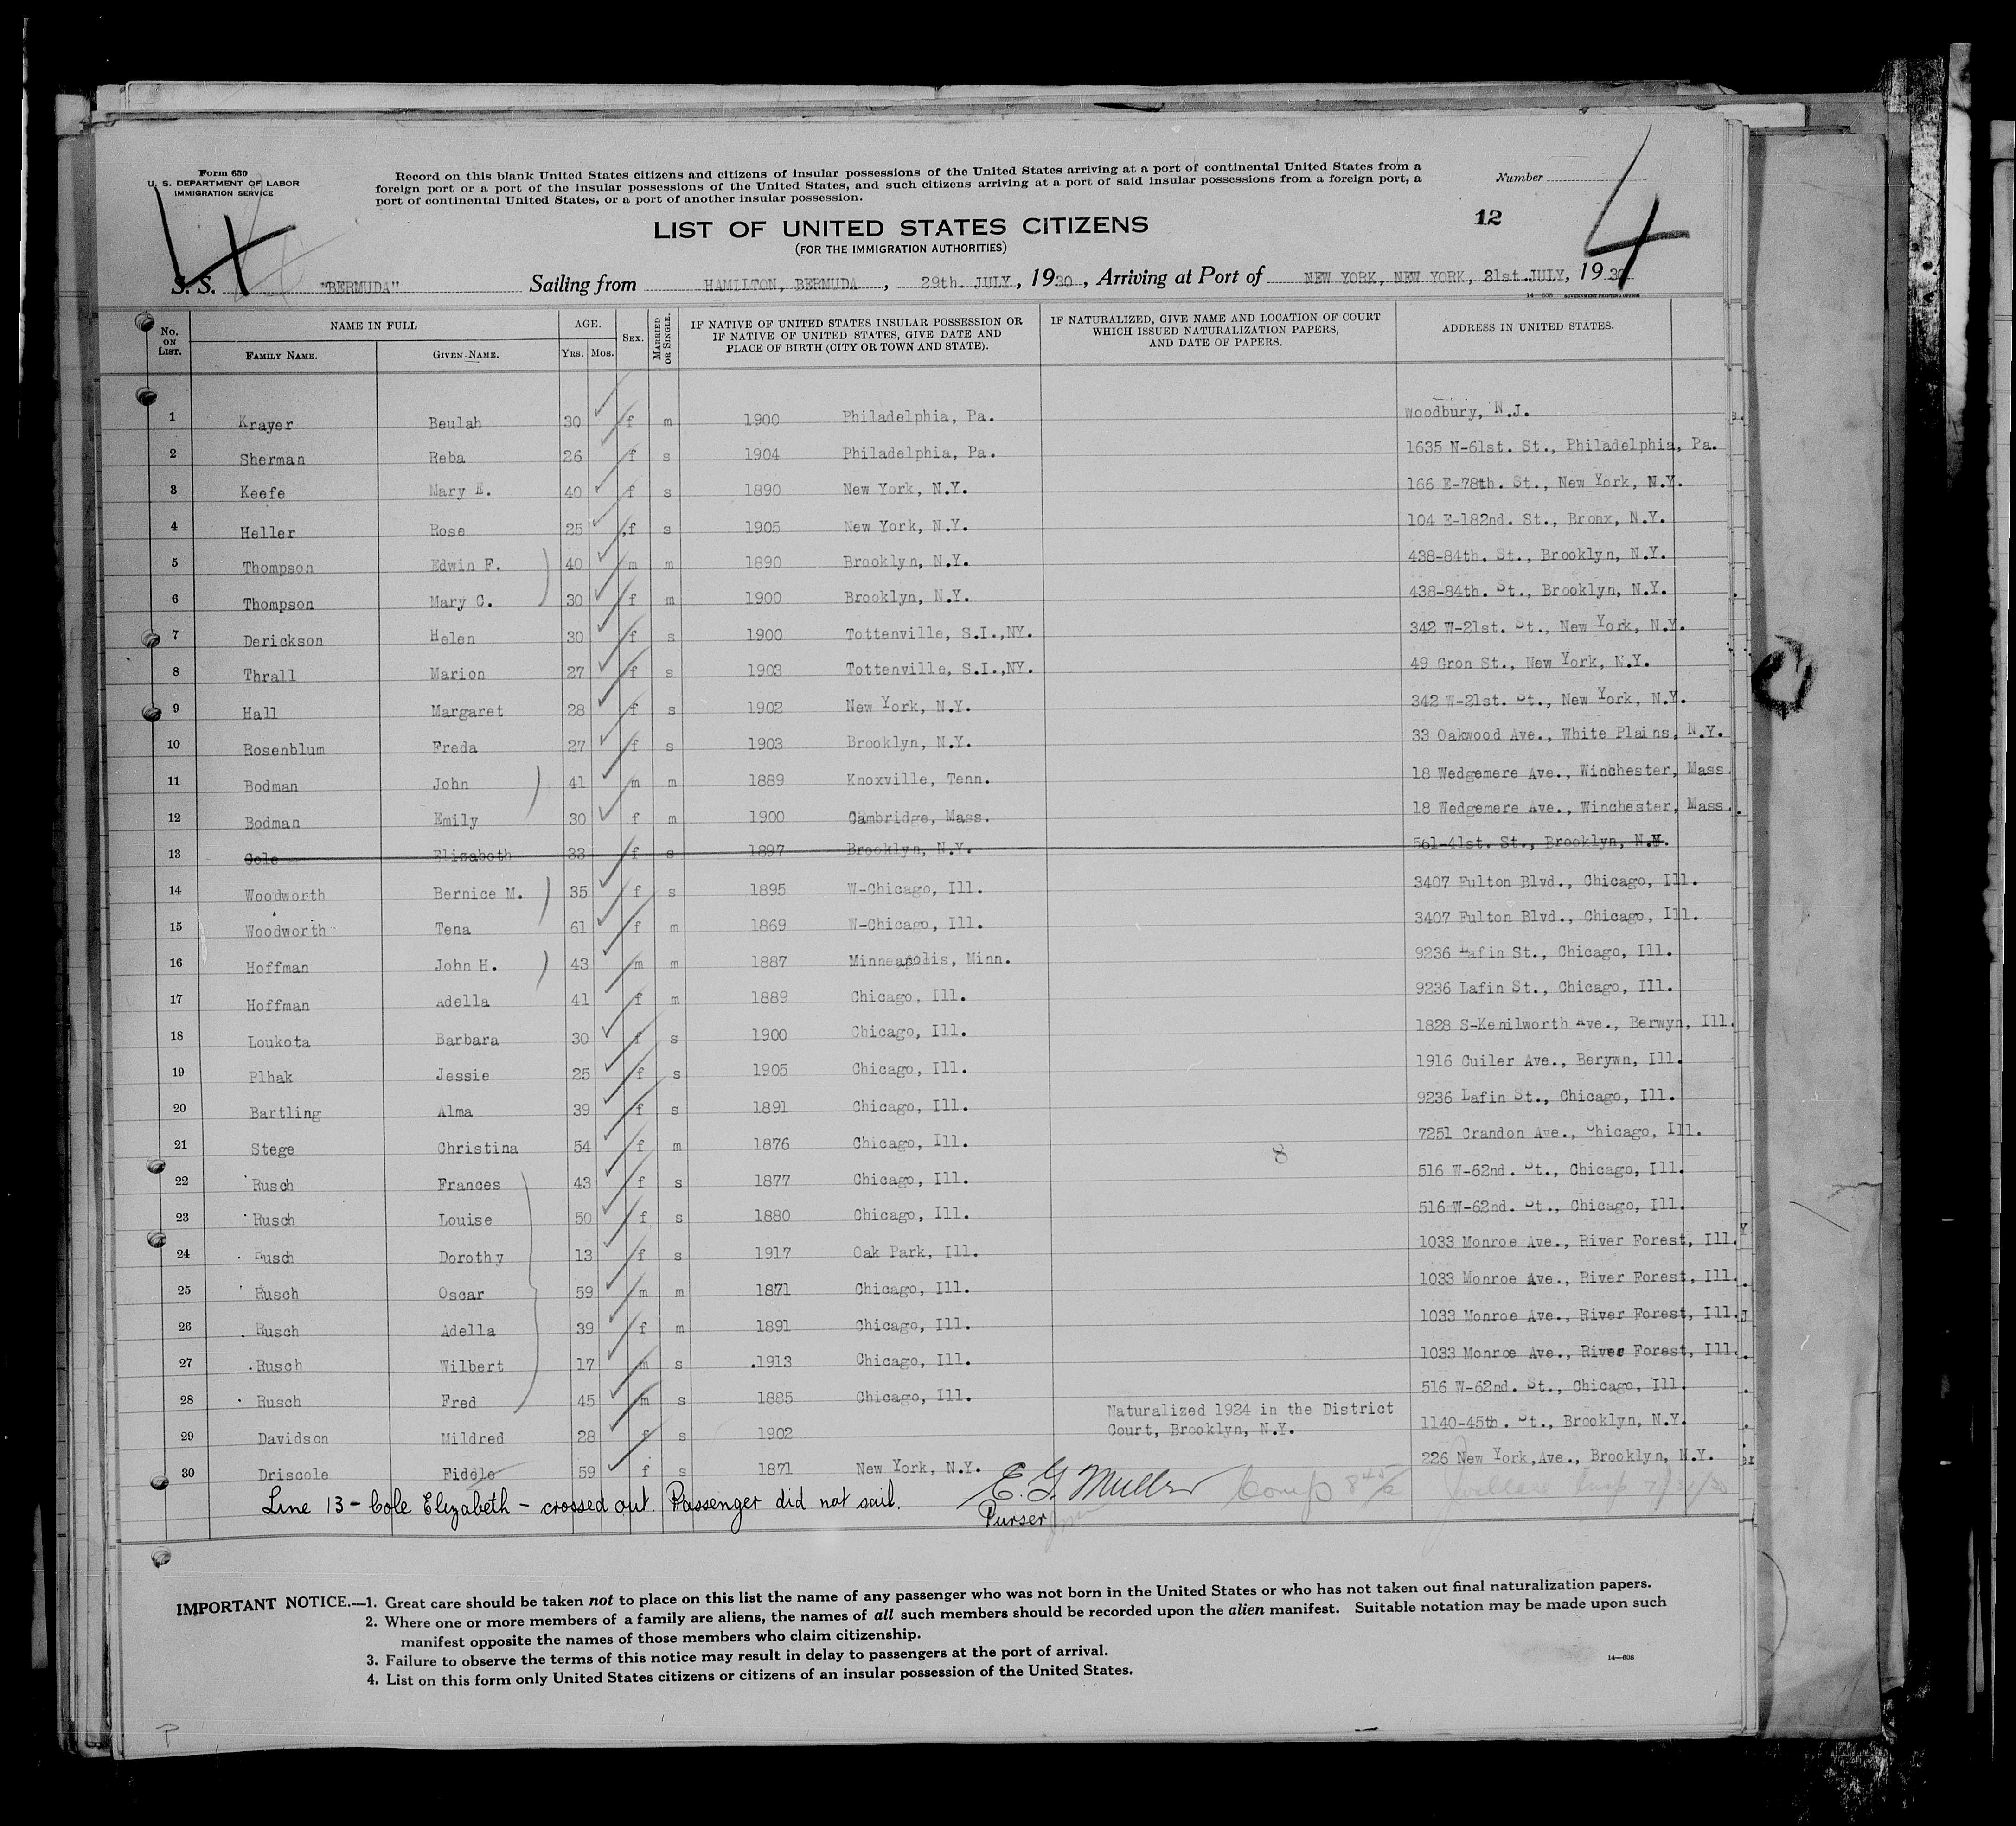 Form 630
U. S. DEPARTMENT OF LABOR
IMMIGRATION SERVICE
Record on this blank United States citizens and citizens of insular possessions of the United States arriving at a port of continental United States from a
foreign port or a port of the insular possessions of the United States, and such citizens arriving at a port of said insular possessions from a foreign port, a
port of continental United States, or a port of another insular possession.
Number
4
12
4
LIST OF UNITED STATES CITIZENS
(FOR THE IMMIGRATION AUTHORITIES)
S. S. "BERMUDA" Sailing from HAMILTON, BERMUDA, 29th. JULY, 1930, Arriving at Port of NEW YORK, NEW YORK, 31st. JULY, 1930
14—608 GOVERNMENT PRINTING OFFICE
No. ON LIST. NAME IN FULL AGE. SEX. MARRIED OR SINGLE. IF NATIVE OF UNITED STATES INSULAR POSSESSION OR IF NATIVE OF UNITED STATES, GIVE DATE AND PLACE OF BIRTH (CITY OR TOWN AND STATE). IF NATURALIZED, GIVE NAME AND LOCATION OF COURT WHICH ISSUED NATURALIZATION PAPERS, AND DATE OF PAPERS. ADDRESS IN UNITED STATES.
FAMILY NAME. GIVEN NAME. YRS. MOS.
1 Krayer Beulah 30 f m 1900 Philadelphia, Pa. Woodbury, N.J.
2 Sherman Reba 26 f s 1904 Philadelphia, Pa. 1635 N-61st. St., Philadelphia, Pa.
3 Keefe Mary E. 40 f s 1890 New York, N.Y. 166 E-78th. St., New York, N.Y.
4 Heller Rose 25 f s 1905 New York, N.Y. 104 E-182nd. St., Bronx, N.Y.
5 Thompson Edwin F. 40 m m 1890 Brooklyn, N.Y. 438-84th. St., Brooklyn, N.Y.
6 Thompson Mary C. 30 f m 1900 Brooklyn, N.Y. 438-84th. St., Brooklyn, N.Y.
7 Derickson Helen 30 f s 1900 Tottenville, S.I.,NY. 342 W-21st. St., New York, N.Y.
8 Thrall Marion 27 f s 1903 Tottenville, S.I.,NY. 49 Gron St., New York, N.Y.
9 Hall Margaret 28 f s 1902 New York, N.Y. 342 W-21st. St., New York, N.Y.
10 Rosenblum Freda 27 f s 1903 Brooklyn, N.Y. 33 Oakwood Ave., White Plains, N.Y.
11 Bodman John 41 m m 1889 Knoxville, Tenn. 18 Wedgemere Ave., Winchester, Mass.
12 Bodman Emily 30 f m 1900 Cambridge, Mass. 18 Wedgemere Ave., Winchester, Mass.
13 Cole Elizabeth 33 f s 1897 Brooklyn, N.Y. 561-41st. St., Brooklyn, N.Y.
14 Woodworth Bernice M. 35 f s 1895 W-Chicago, Ill. 3407 Fulton Blvd., Chicago, Ill.
15 Woodworth Tena 61 f m 1869 W-Chicago, Ill. 3407 Fulton Blvd., Chicago, Ill.
16 Hoffman John H. 43 m m 1887 Minneapolis, Minn. 9236 Lafin St., Chicago, Ill.
17 Hoffman Adella 41 f m 1889 Chicago, Ill. 9236 Lafin St., Chicago, Ill.
18 Loukota Barbara 30 f s 1900 Chicago, Ill. 1828 S-Kenilworth Ave., Berwyn, Ill.
19 Plhak Jessie 25 f s 1905 Chicago, Ill. 1916 Cuiler Ave., Berywn, Ill.
20 Bartling Alma 39 f s 1891 Chicago, Ill. 9236 Lafin St., Chicago, Ill.
21 Stege Christina 54 f m 1876 Chicago, Ill. 8 7251 Crandon Ave., Chicago, Ill.
22 Rusch Frances 43 f s 1877 Chicago, Ill. 516 W-62nd. St., Chicago, Ill.
23 Rusch Louise 50 f s 1880 Chicago, Ill. 516 W-62nd. St., Chicago, Ill.
24 Rusch Dorothy 13 f s 1917 Oak Park, Ill. 1033 Monroe Ave., River Forest, Ill.
25 Rusch Oscar 59 m m 1871 Chicago, Ill. 1033 Monroe Ave., River Forest, Ill.
26 Rusch Adella 39 f m 1891 Chicago, Ill. 1033 Monroe Ave., River Forest, Ill.
27 Rusch Wilbert 17 m s 1913 Chicago, Ill. 1033 Monroe Ave., River Forest, Ill.
28 Rusch Fred 45 m s 1885 Chicago, Ill. 516 W-62nd. St., Chicago, Ill.
29 Davidson Mildred 28 f s 1902 Naturalized 1924 in the District Court, Brooklyn, N.Y. 1140-45th. St., Brooklyn, N.Y.
30 Driscole Fidele 59 f s 1871 New York, N.Y. 226 New York,Ave., Brooklyn, N.Y.
Line 13 - Cole Elizabeth - crossed out. Passenger did not sail. E. G. Muller Comp
Purser
IMPORTANT NOTICE.—1. Great care should be taken not to place on this list the name of any passenger who was not born in the United States or who has not taken out final naturalization papers.
2. Where one or more members of a family are aliens, the names of all such members should be recorded upon the alien manifest. Suitable notation may be made upon such
manifest opposite the names of those members who claim citizenship.
3. Failure to observe the terms of this notice may result in delay to passengers at the port of arrival.
4. List on this form only United States citizens or citizens of an insular possession of the United States.
14—608
P